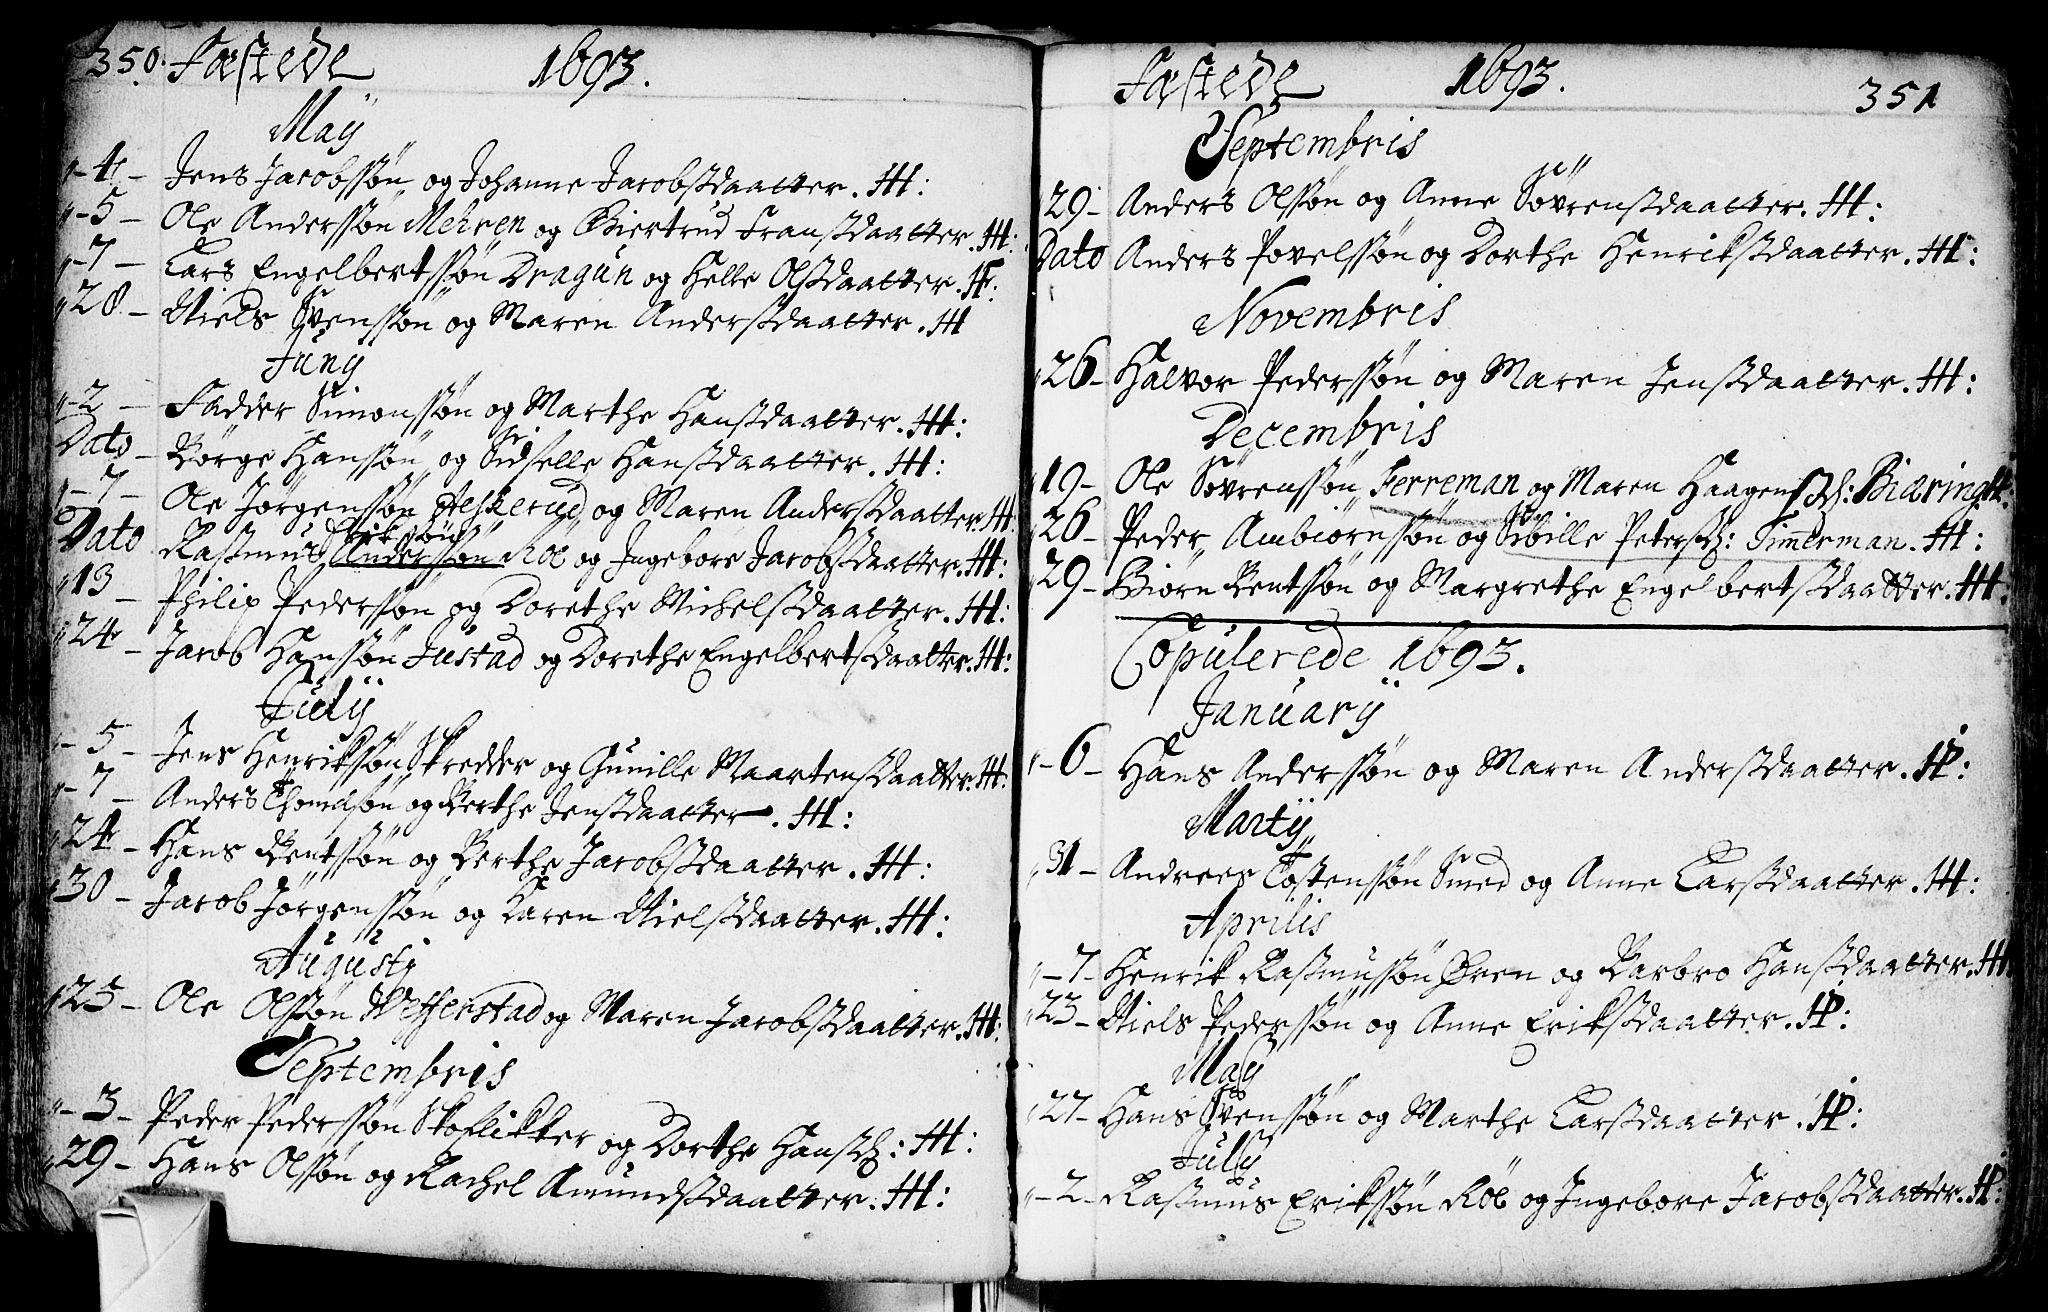 350. Fæstede 1693.
Maÿ
4 – Jens Jacobssøn og Johanne Jacobsdaatter. HH:
5 – Ole Anderssøn Mehren og Giertrud Fransdaatter. HH:
7 – Lars Engelbertssøn Dragun og Helle Olsdaatter. HH:
28 – Niels Svenssøn og Maren Andersdaatter. HH
Junÿ
2 – Fadder Simonssøn og Marthe Hansdaatter. HH:
Dato – Børge Hanssøn og Sidselle Hansdaatter. HH:
7 – Ole Jørgenssøn Askerud og Maren Andersdaatter. HH
Erikssøn
Dato Rasmus Anderssøn Röe og Ingebore Jacobsdaatter. HH:
13 – Philip Pederssøn og Dorethe Michelsdaatter. HH:
24 – Jacob Hanssøn Justad og Dorethe Engelbertsdaatter. HH:
Julÿ
5 – Jens Henrikssøn Skredder og Gunille Maartensdaatter. HH:
7 – Anders Thomssøn og Berthe Jensdaatter. HH:
24 – Hans Bentssøn og Berthe Jacobsdaatter. HH:
30 – Jacob Jørgenssøn og Karen Nielsdaatter. HH:
Augustj
23 – Ole Olssøn Wefferstad og Maren Jacobsdaatter. HH:
Septembris
3 – Peder Pederssøn Skoflikker og Dorthe Hansd: HH:
29 – Hans Olssøn og Rachel Amundsdaatter. HH:
Fæstede 1693. 351
Septembris
29 – Anders Olssøn og Anne Sövrensdaatter. HH:
Dato Anders Povelssøn og Dorthe Henriksdaatter. HH:
Novembris
26 – Halvor Pederssøn og Maren Jensdaatter. HH:
Decembris
19 – Ole Sövrenssøn Ferreman og Maren Haagensd: Biæring. HH:
26 – Peder Ambiörnssøn og Sibille Petersd: Timmerman. HH:
29 – Biørn Bentssøn og Margrethe Engelbertsdaatter. HH.
Copulerede 1693.
Januarÿ
6 – Hans Anderssøn og Maren Andersdaatter. HP:
Martÿ
31 – Andrees Tostenssøn Smed og Anne Larsdaatter. HH:
Aprilis
7 – Henrik Rasmussøn Øren og Barbro Hansdaatter. HH
23 – Niels Pederssøn og Anne Eriksdaatter. HP:
Maÿ
27 – Hans Svenssøn og Marthe Larsdaatter. HP:
Julÿ
2 – Rasmus Erikssøn Röe og Ingebore Jacobsdaatter. HP: